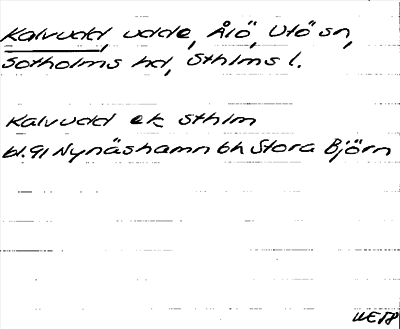 Kalvudd, udde, Ålö, Utö sn,
Sotholms hd, Sthlms l.
Kalvudd ek Sthlm
bl. 91 Nynäshamn 6h Stora Björn
WE58